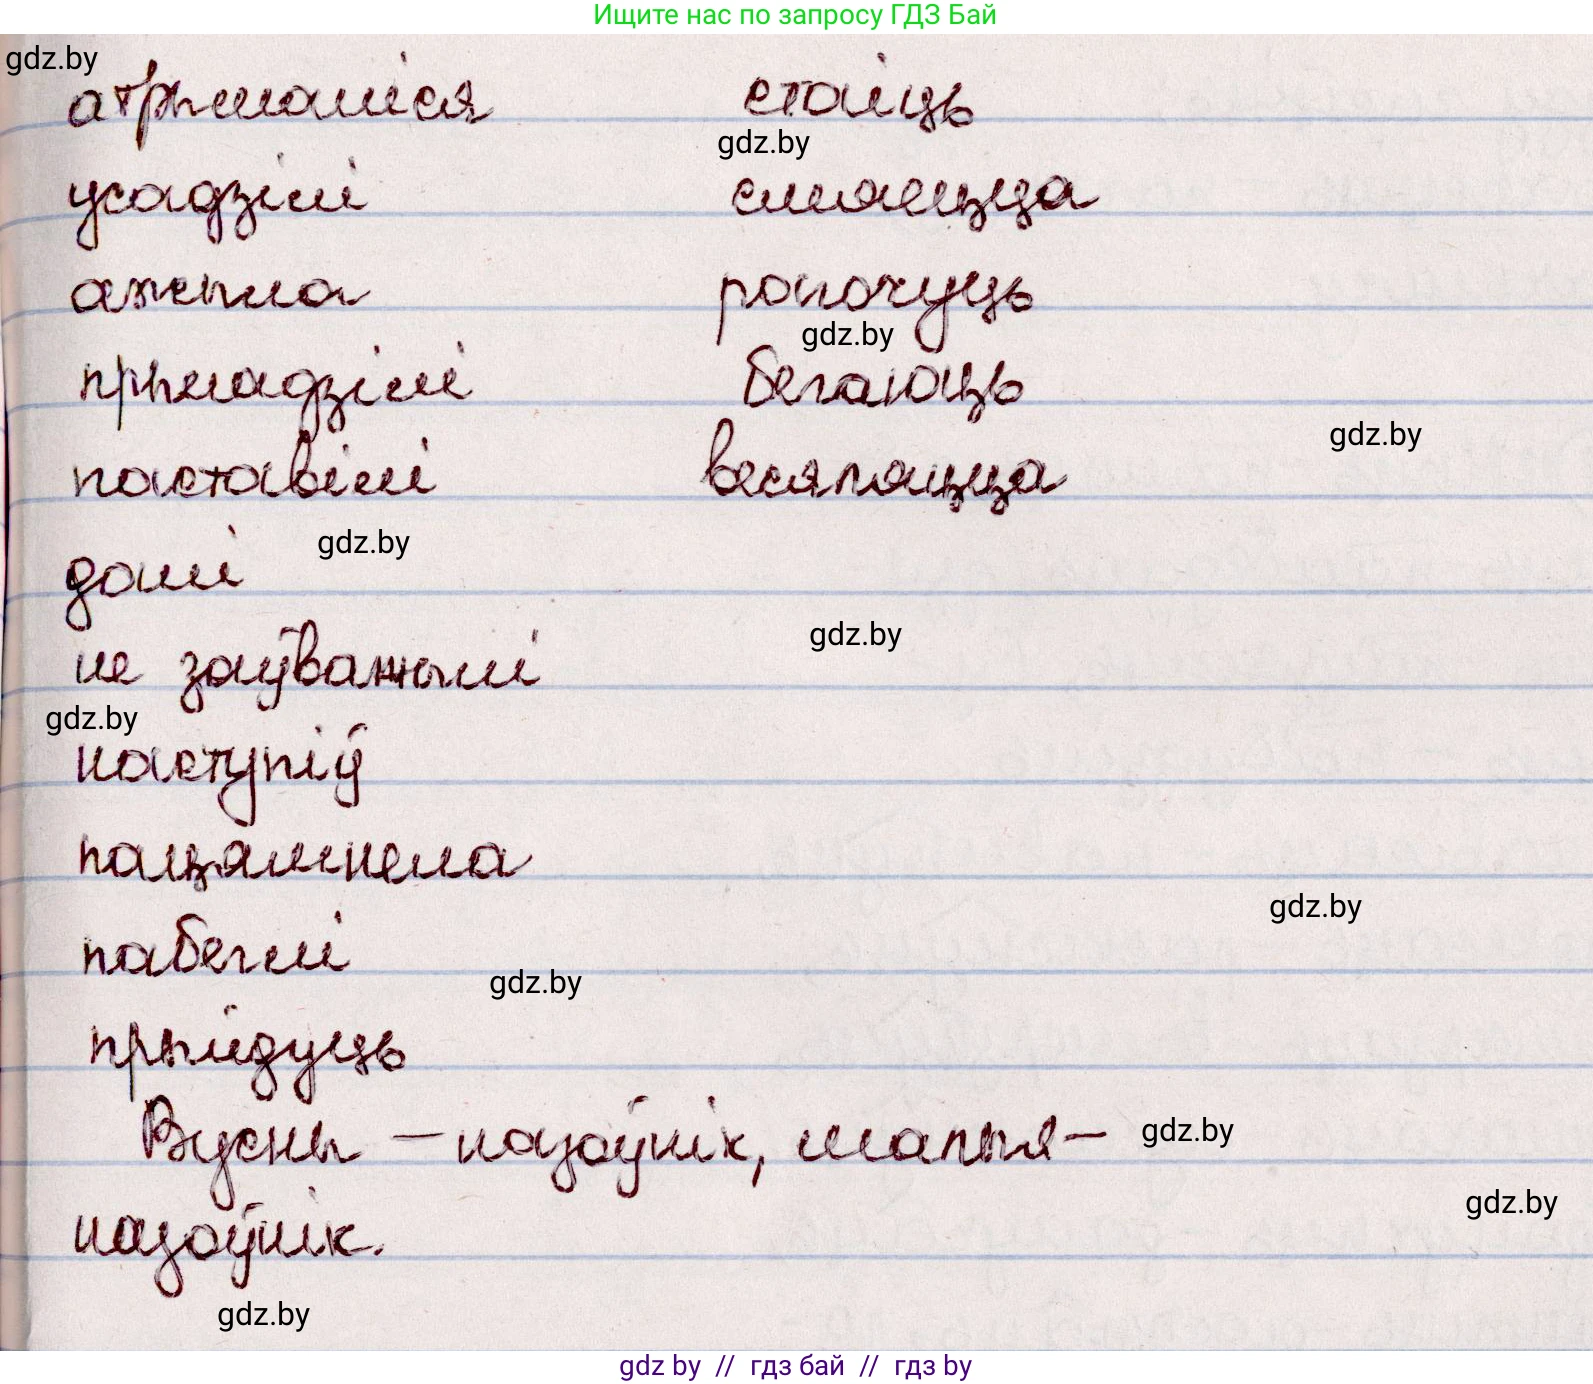 Ищите нас по запросу ГДЗ Бай
gdz.by
атрымаліся стаіць
gdz.by
усадзілі смяецца
ажыла рагочуць
gdz.by
прыладзілі бегаюць
gdz.by
паставілі весяляцца
gdz.by
далі
gdz.by
не заўважылі
gdz.by
наступіў
пацямнела
gdz.by
пабеглі
gdz.by
прыйдуць
Вусны – назоўнік, малыя –
gdz.by
gdz.by
назоўнік.
gdz.by
gdz by // гдз бай // гдз by